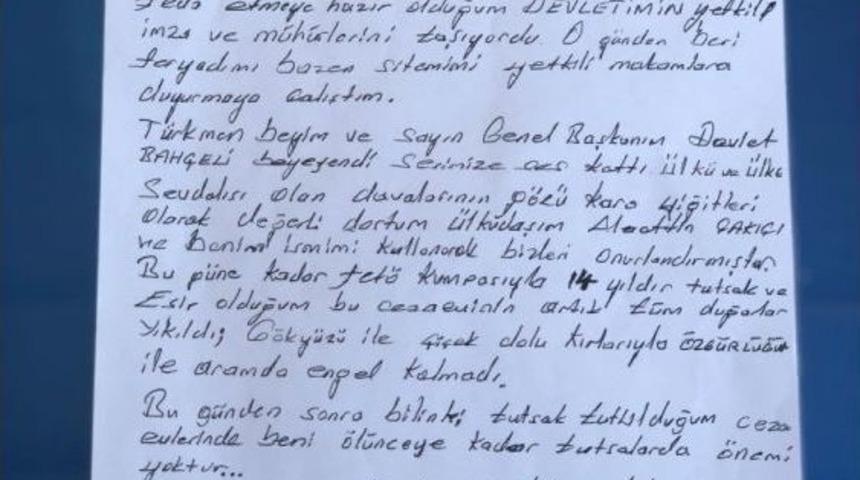 feda etmeye hazır olduğum DEVLETİMİN yetkili
imza ve mühürlerini taşıyordu. O günden beri
feryadımı bazen sitemimi yetkili makamlara
duyurmaya çalıştım.
Türkmen beyim ve sayın Genel Başkanım Devlet
BAHÇELİ beyefendi sesinize ses kattı ülkü ve ülke
Sevdalısı olan davalarının gözü kara yiğitleri
olarak değerli dostum ülküdaşım Alaattin ÇAKICI
ve benim ismimi kullanarak bizleri onurlandırmıştır.
Bu güne kadar fetö kumpasıyla 14 yıldır tutsak ve
Esir olduğum bu cezaevinin artık tüm duvarları
yıkıldı; Gökyüzü ile çiçek dolu kırlarıyla ÖZGÜRLÜĞÜM
ile aramda engel kalmadı.
Bu günden sonra bilinki; tutsak tutulduğum ceza
evlerinde beni ölünceye kadar tutsalarda önemi
yoktur...